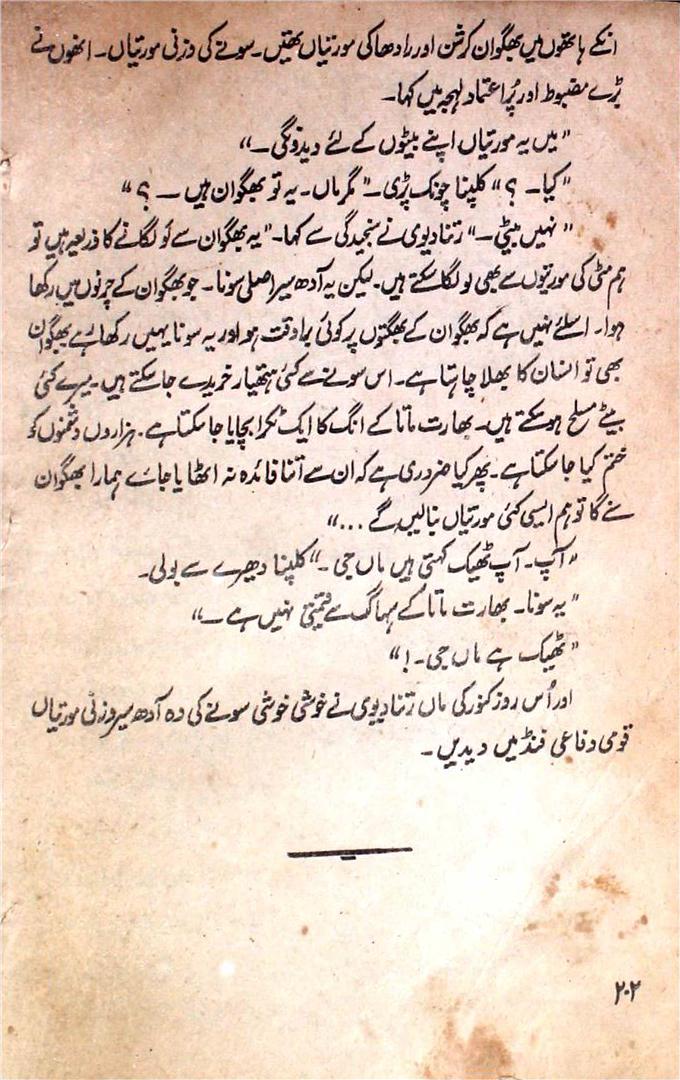 انکے ہاتھوں میں بھگوان کرشن اور رادھا کی مورتیاں تھیں۔ سونے کی وزنی مورتیاں۔ انھوں نے
بڑے مضبوط اور پُراعتماد لہجہ میں کہا۔
"میں یہ مورتیاں اپنے بیٹوں کے لئے دیدونگی۔"
"کیا۔ ؟" کلپنا چونک پڑی۔ "مگر ماں۔ یہ تو بھگوان ہیں ۔ ؟"
"نہیں بیٹی۔" رتنا دیوی نے سنجیدگی سے کہا۔ "یہ بھگوان سے لَو لگانے کا ذریعہ ہیں تو
ہم مٹی کی مورتیوں سے بھی لو لگا سکتے ہیں۔ لیکن یہ آدھ سیر اصلی سونا۔ جو بھگوان کے چرنوں میں رکھا
ہوا۔ اسلئے نہیں ہے کہ بھگوان کے بھگتوں پر کوئی برا وقت ہو اور یہ سونا یہیں رکھا رہے بھگوان
بھی تو انسان کا بھلا چاہتا ہے۔ اس سونے سے کئی ہتھیار خریدے جا سکتے ہیں۔ میرے کئی
بیٹے مسلح ہو سکتے ہیں۔ بھارت ماتا کے انگ کا ایک ٹکرا بچایا جا سکتا ہے۔ ہزاروں دشمنوں کو
ختم کیا جا سکتا ہے۔ پھر کیا ضروری ہے کہ ان سے اتنا فائدہ نہ اٹھایا جائے ہمارا بھگوان
سنے گا تو ہم ایسی کئی مورتیاں بنالیں گے ..."
"آپ۔ آپ ٹھیک کہتی ہیں ماں جی۔" کلپنا دھیرے سے بولی۔
"یہ سونا۔ بھارت ماتا کے سہاگ سے قیمتی نہیں ہے۔"
"ٹھیک ہے ماں جی۔!"
اور اُس روز کنور کی ماں رتنا دیوی نے خوشی خوشی سونے کی وہ آدھ سیر وزنی مورتیاں
قومی دفاعی فنڈ میں دیدیں۔
۲۰۲